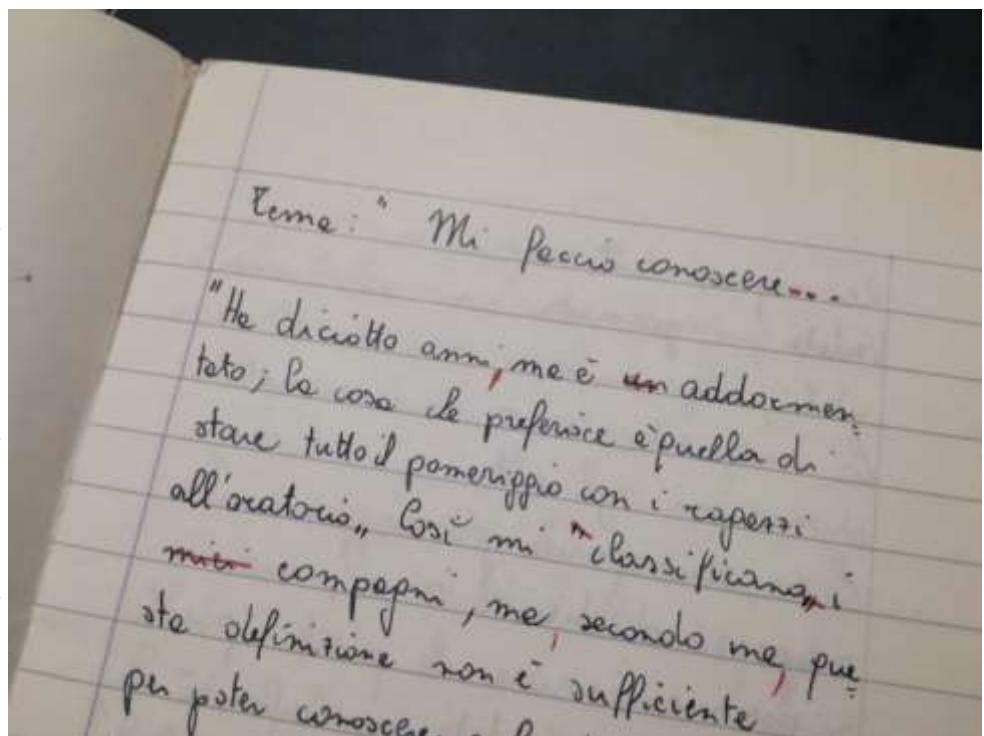 Tema: " Mi faccio conoscere...
"Ha diciotto anni, ma è un addormen=
tato; la cosa che preferisce è quella di
stare tutto il pomeriggio con i ragazzi
all'oratorio„ Così mi "classificano„ i
miei compagni, ma, secondo me, que=
sta definizione non è sufficiente
per poter conoscere